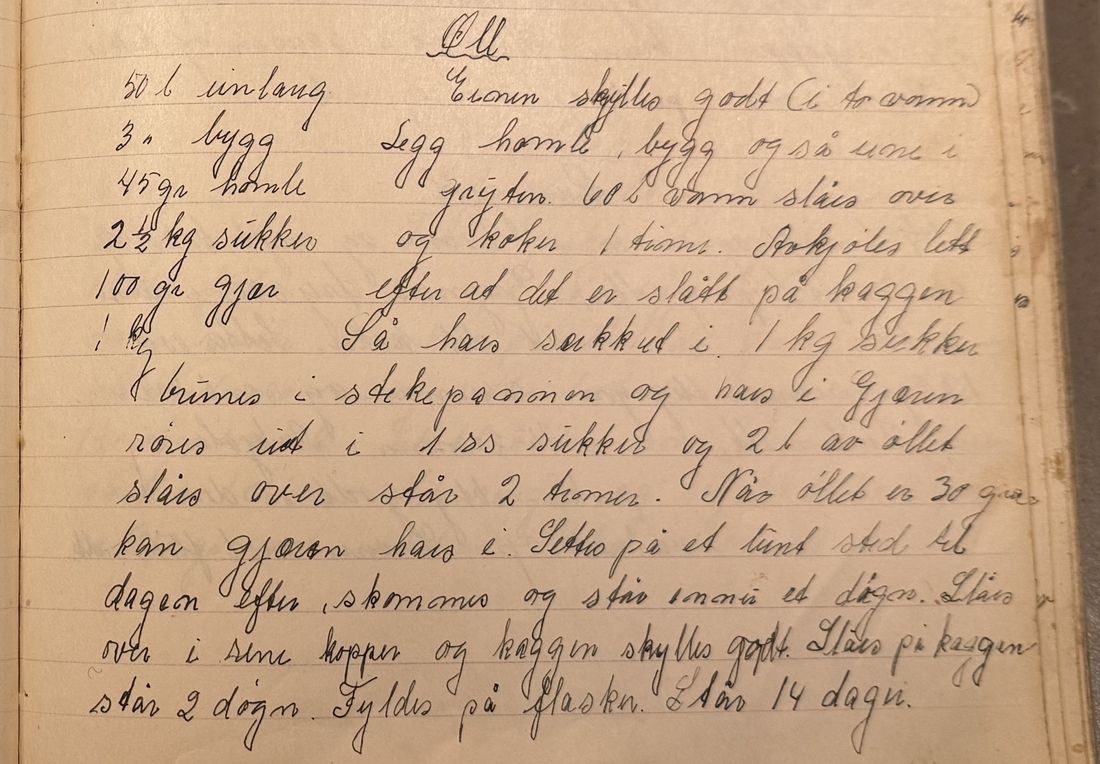 Øll
50 l einlaug Einen skylles godt (i to vann)
3 " bygg Legg homle, bygg også eine i
45 gr homle gryten. 60 l vann slåes over
2 1/2 kg sukker og koker 1 time. Avkjøles lett
100 gr gjær efter at det er slått på kaggen
1 kg Så haes sukkeret i. 1 kg sukker
brunes i stekepannen og haes i Gjæren
røres ut i 1 ss sukker og 2 l av øllet
slåes over står 2 timer. Når øllet er 30 grader
kan gjæren haes i. Settes på et lunt sted til
dagen efter, skommes og står ennu et døgn. Slåes
over i rene kopper og kaggen skylles godt. Slåes på kaggen
står 2 døgn. Fyldes på flasker. Står 14 dager.